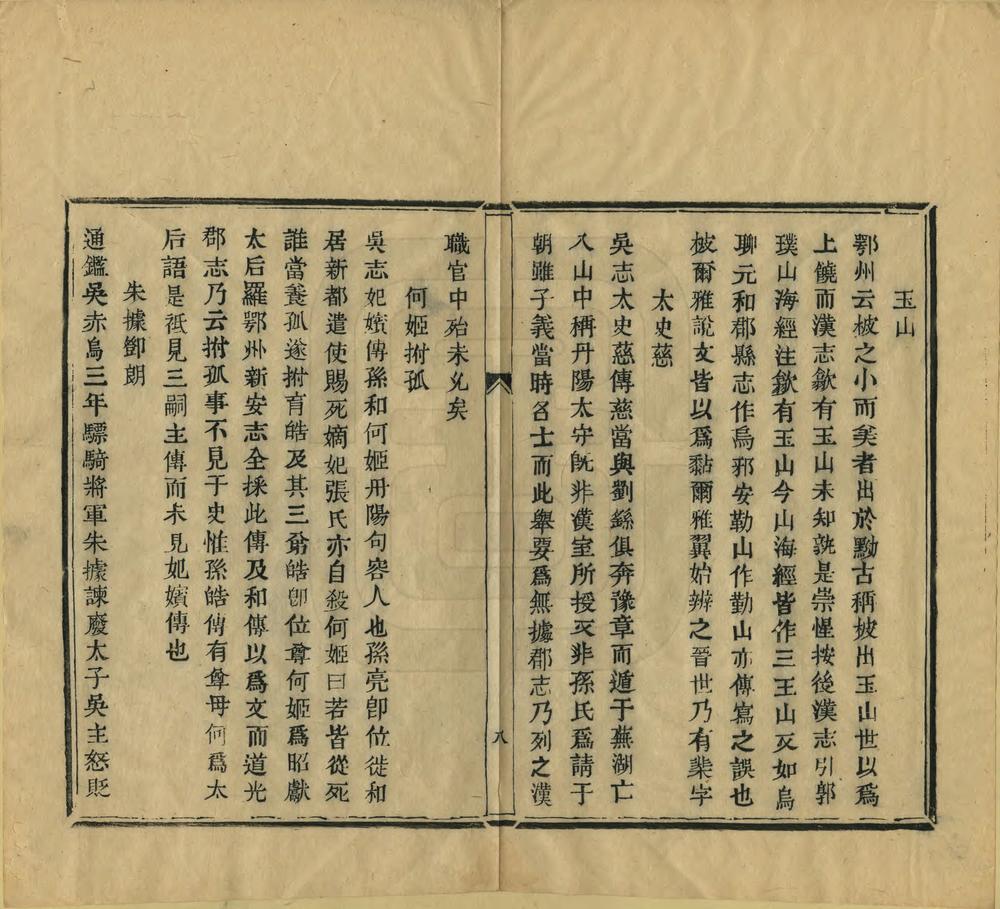 玉山
鄂州云柀之小而矣者出於黝古稱柀出玉山世以爲
上饒而漢志歙有玉山未知孰是崇惺按後漢志引郭
璞山海經注歙有玉山今山海經皆作三王山又如烏
聊元和郡縣志作烏邪安勒山作勤山亦傳寫之誤也
柀爾雅說文皆以爲黏爾雅翼始辨之晉世乃有棐字
太史慈
吳志太史慈傳慈當與劉繇俱奔豫章而遁于蕪湖亡
入山中稱丹陽太守既非漢室所授又非孫氏爲請于
朝雖子義當時名士而此舉要爲無據郡志乃列之漢
八
職官中殆未允矣
何姬拊孤
吳志妃嬪傳孫和何姬丹陽句容人也孫亮卽位徙和
居新都遣使賜死嫡妃張氏亦自殺何姬曰若皆從死
誰當養孤遂拊育皓及其三弟皓卽位尊何姬爲昭獻
太后羅鄂州新安志全採此傳及和傳以爲文而道光
郡志乃云拊孤事不見于史惟孫皓傳有尊母何爲太
后語是祗見三嗣主傳而未見妃嬪傳也
朱據鄧朗
通鑑吳赤烏三年驃騎將軍朱據諫廢太子吳主怒貶